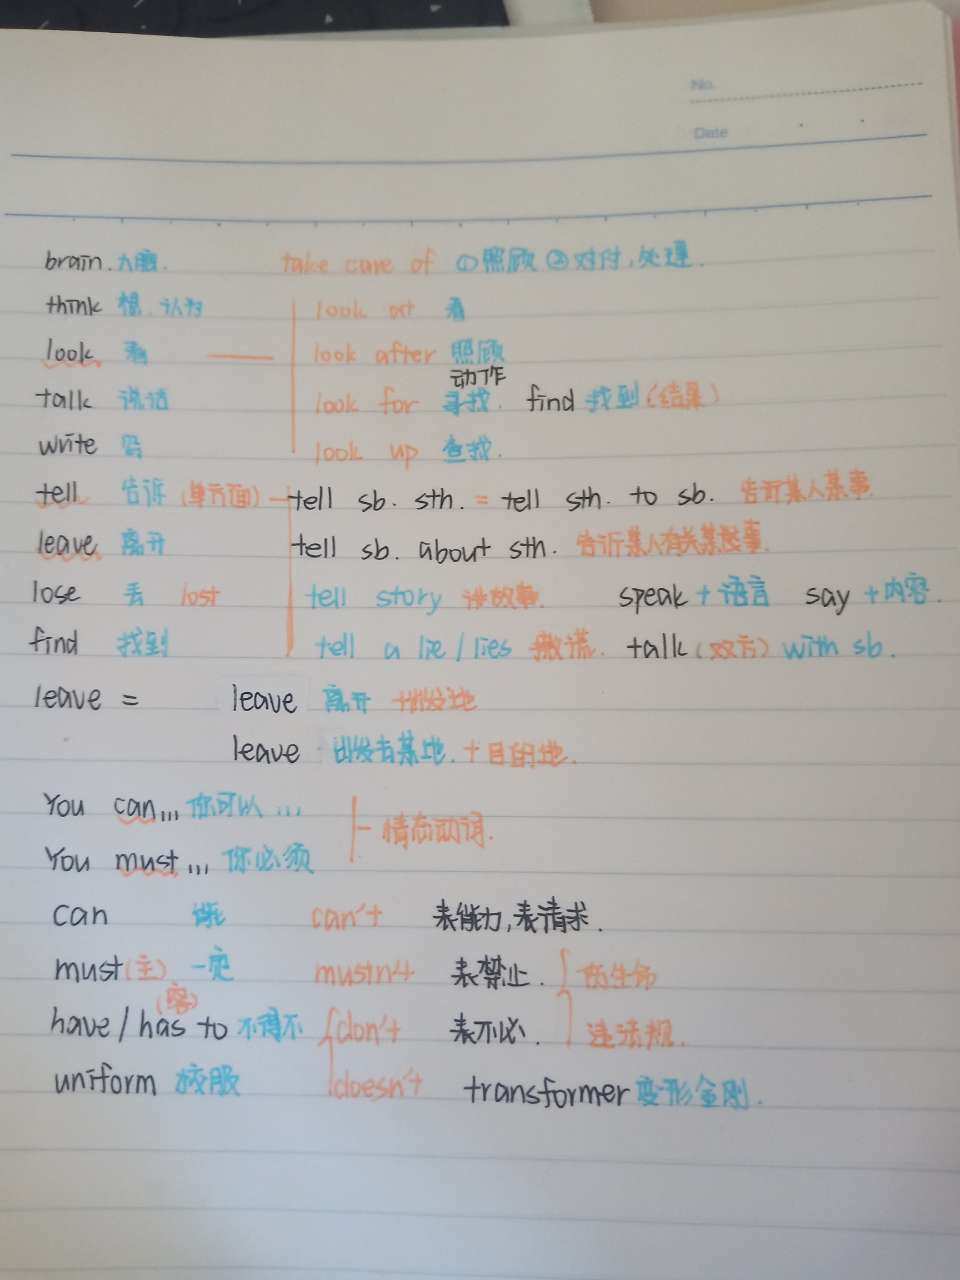 No.
Date
brain. 大脑. take care of ①照顾 ②对付,处理.
think 想.认为 look at 看
look 看 look after 照顾
动作
talk 说话 look for 寻找. find 找到(结果)
write 写 look up 查找.
tell 告诉 (单方面) tell sb. sth. = tell sth. to sb. 告诉某人某事
leave 离开 tell sb. about sth. 告诉某人有关某事.
lose 丢 lost tell story 讲故事. speak + 语言 say + 内容.
find 找到 tell a lie / lies 撒谎. talk (双方) with sb.
leave = leave 离开 +出发地
leave 出发去某地. + 目的地.
You can... 你可以...
情态动词.
You must... 你必须
can 能 can't 表能力,表请求.
must(主) 一定 mustn't 表禁止.
(客)
have / has to 不得不 don't 表不必. 违法规.
uniform 校服 doesn't transformer 变形金刚.